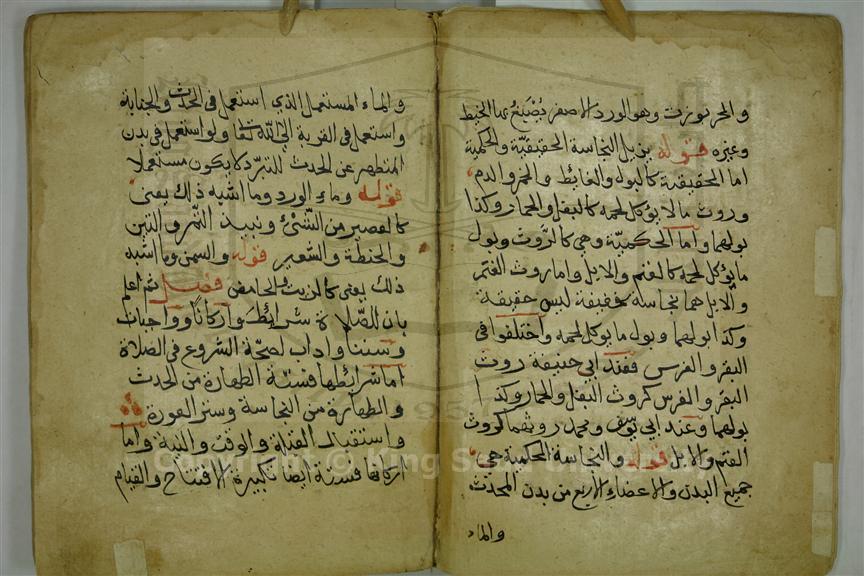 وهو الورد الاصفر يُصْبَغُ بها الخيط
وغيره قوله يزيل النجاسة الحقيقيّة والحكمية
اما الحقيقية كالبول والغايط والخمر والدم
وروث ما لا يؤكل لحمه كالبغل والحمار وكذا
بولهما واما الحكميّة وهي كالرَّوث وبول
ما يؤكل لحمه كالغنم والابل واما روث الغنم
والابل هما نجاسة خفيفة ليس حقيقة
وكذا ابوالهما وبول ما يوكل لحمه واختلفوا في
البقر والفرس فعند ابي حنيفة روث
البقر والفرس كروث البغل والحمار وكذا
بولهما وعند ابى يوسف ومحمد روثهما كروث
الغنم والابل قوله والنجاسة الحكمية هي
جميع البدن والاعضاء الاربع من بدن المحدث
والماء
والماء المستعمل الذي استعمل في الحدث والجنابة
واستعمل في القربة الى الله تعا ولو استعمل في بدن
المتطهر عن الحدث للتبرّد لا يكون مستعملا
قوله وماء الورد وما اشبه ذلك يعنى
كالعصير من الشّئ ونبيذ التّمر والتين
والحنطة والشعير قوله والسمن وما اشبه
ذلك يعنى كالزيت والحامض فصل ثم اعلم
بان للصّلاة شرائطَ واركانًا وواجبات
وسننا واداب لصحّة الشروع في الصلاة
اما شرايطها فستّة الطهارة من الحدث
والطهارة من النجاسة وستر العورة
واستقبال القبلة والوقت والنية واما
اركانها فستة ايضا تكبيرة الافتتاح والقيام